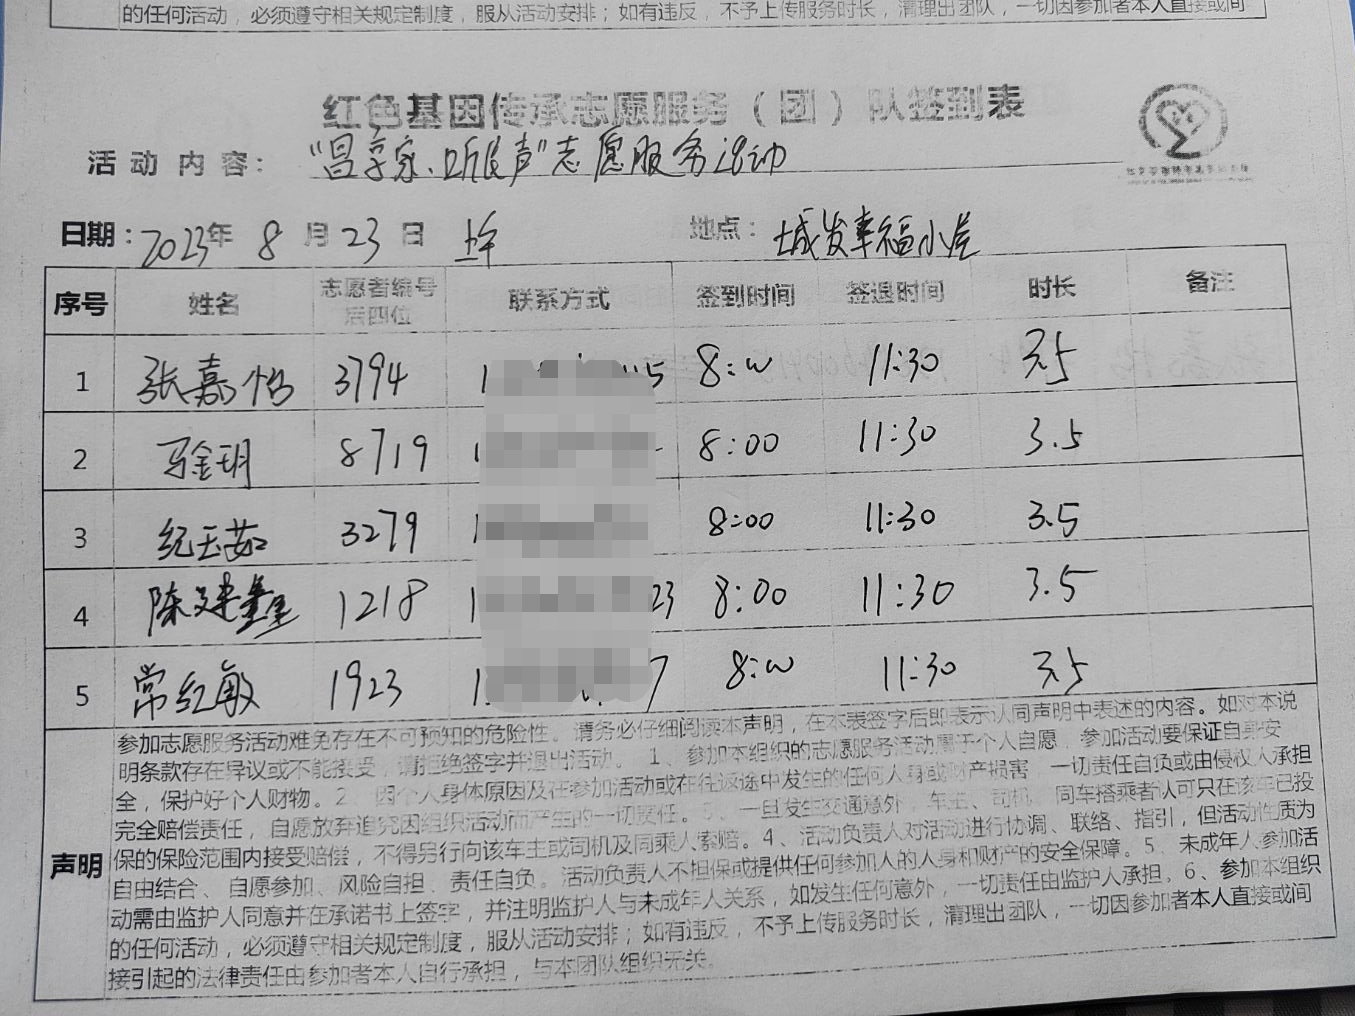 的任何活动，必须遵守相关规定制度，服从活动安排；如有违反，不予上传服务时长，清理出团队，一切因参加者本人直接或间
红色基因传承志愿服务（团）队签到表
活动内容：“昌享家、听民声”志愿服务活动
日期：2023年 8月23日 上午 地点：城发幸福小台
序号 姓名 志愿者编号后四位 联系方式 签到时间 签退时间 时长 备注
1 张嘉怡 3794 1 5 8:00 11:30 3.5
2 马金玥 8719 1 8:00 11:30 3.5
3 纪玉茹 3279 1 8:00 11:30 3.5
4 陈建鑫 1218 1 23 8:00 11:30 3.5
5 常红敏 1923 1 7 8:00 11:30 3.5
声明
参加志愿服务活动难免存在不可预知的危险性。请务必仔细阅读本声明，在本表签字后即表示认同声明中表述的内容。如对本说
明条款存在异议或不能接受，请拒绝签字并退出活动。 1、参加本组织的志愿服务活动属于个人自愿，参加活动要保证自身安
全，保护好个人财物。2、因个人身体原因及在参加活动或在往返途中发生的任何人身或财产损害，一切责任自负或由侵权人承担
完全赔偿责任，自愿放弃追究因组织活动而产生的一切责任。3、一旦发生交通意外，车主、司机、同车搭乘者认可只在该车已投
保的保险范围内接受赔偿，不得另行向该车主或司机及同乘人索赔。4、活动负责人对活动进行协调、联络、指引，但活动性质为
自由结合、自愿参加、风险自担、责任自负。活动负责人不担保或提供任何参加人的人身和财产的安全保障。5、未成年人参加活
动需由监护人同意并在承诺书上签字，并注明监护人与未成年人关系，如发生任何意外，一切责任由监护人承担。6、参加本组织
的任何活动，必须遵守相关规定制度，服从活动安排；如有违反，不予上传服务时长，清理出团队，一切因参加者本人直接或间
接引起的法律责任由参加者本人自行承担，与本团队组织无关。